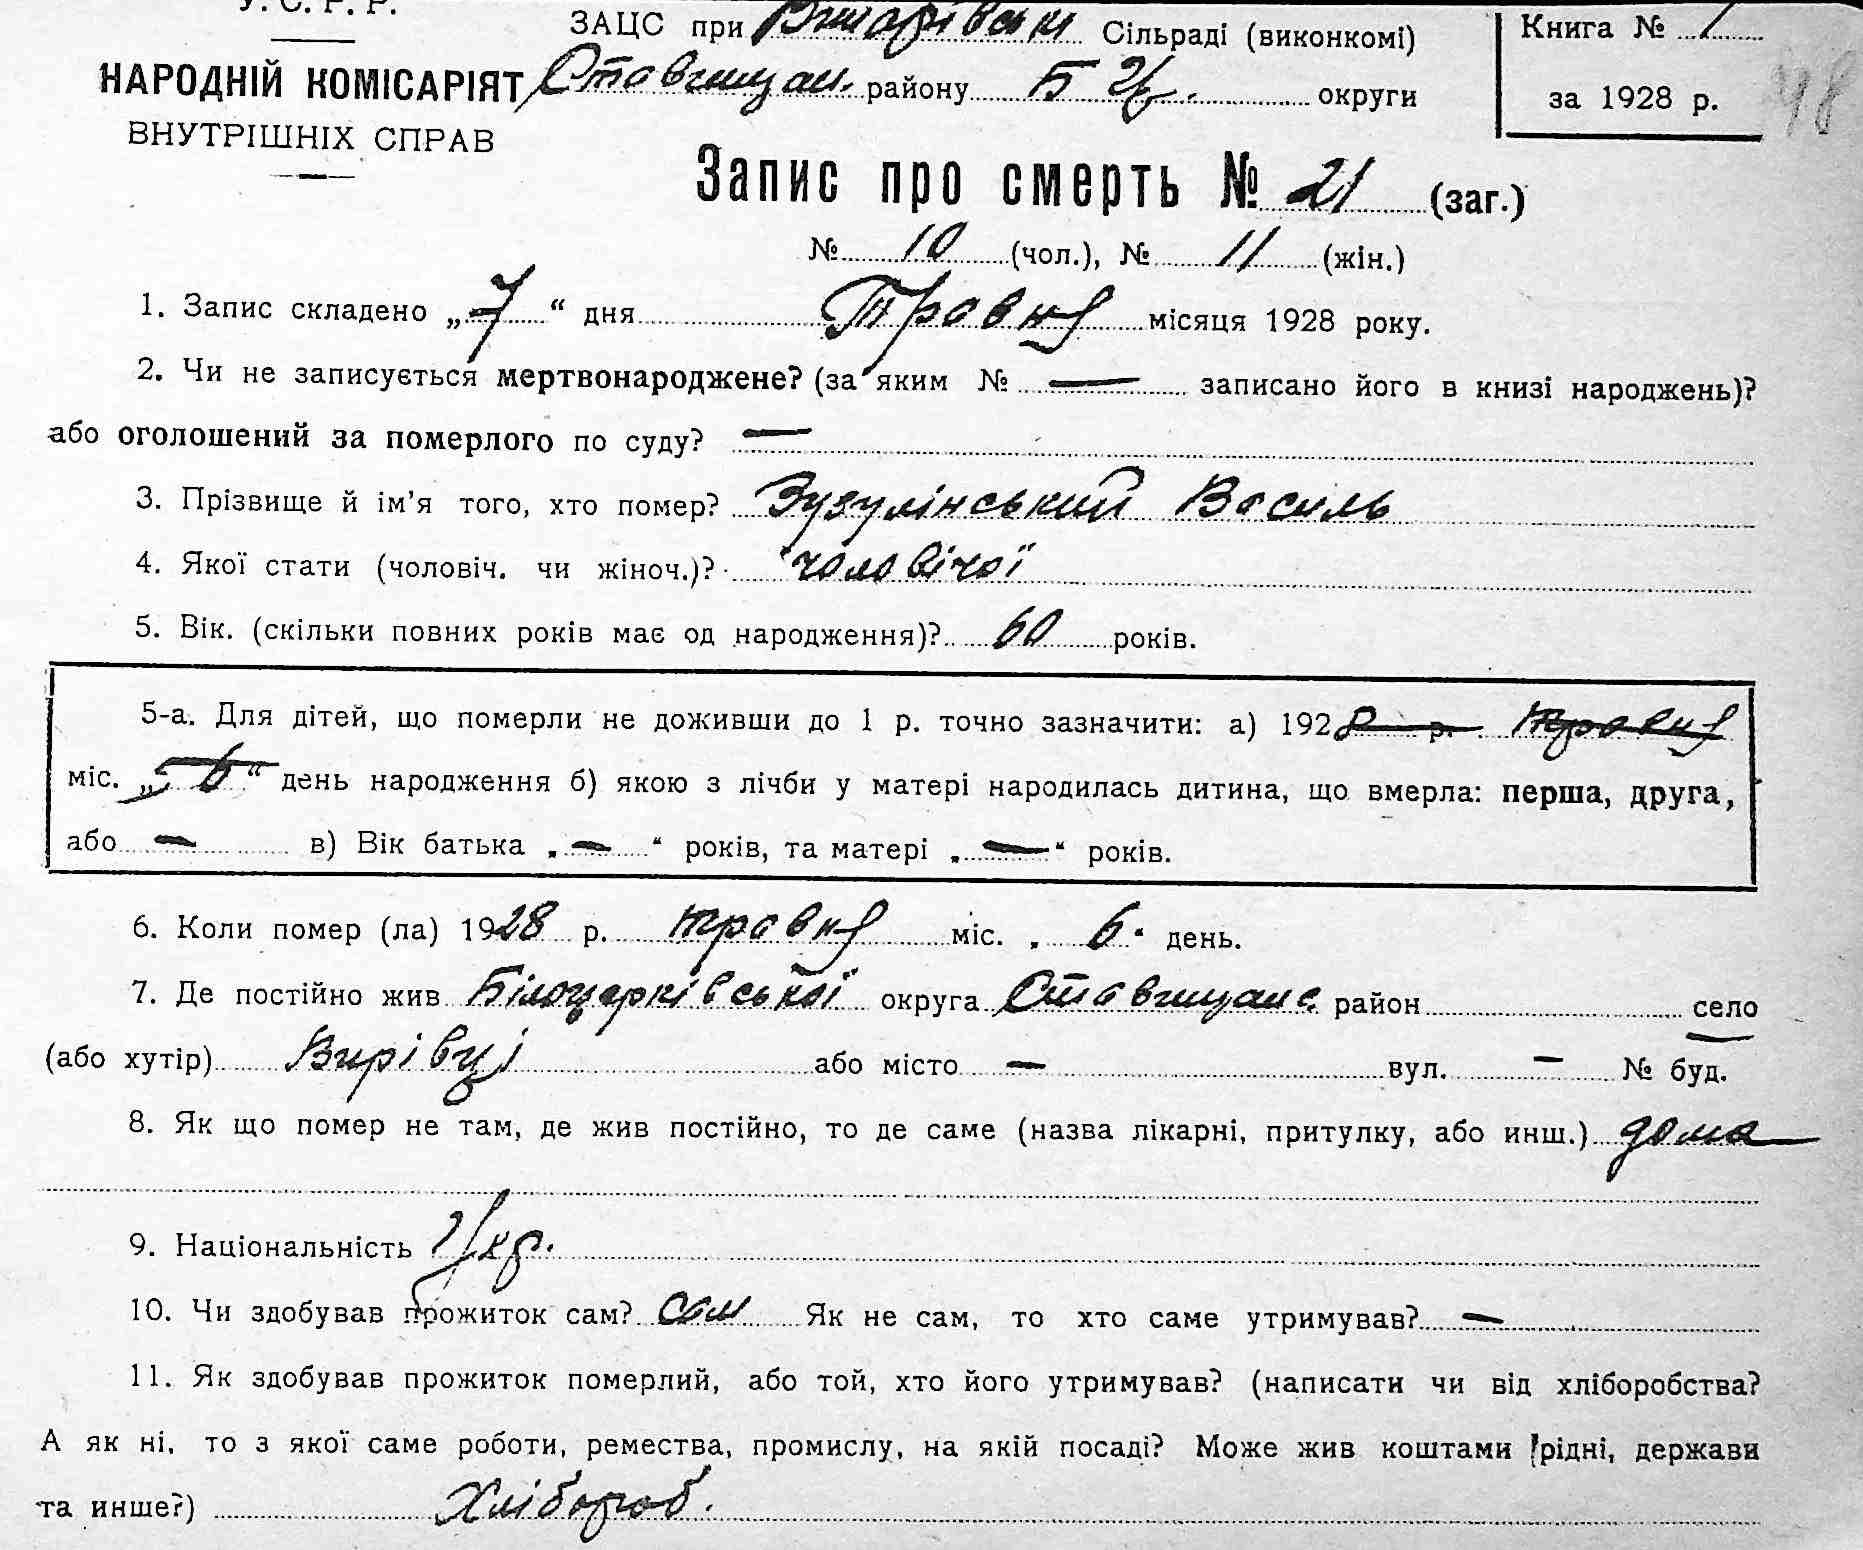 У. С. Р. Р.
НАРОДНІЙ КОМІСАРІЯТ
ВНУТРІШНІХ СПРАВ
ЗАЦС при Сільраді (виконкомі)
Ставищан. району Б Ц. округи
Книга № 1
за 1928 р.
48
Запис про смерть № 21 (заг.)
№ 10 (чол.), № 11 (жін.)
1. Запис складено „7“ дня Травня місяця 1928 року.
2. Чи не записується мертвонароджене? (за яким № — записано його в книзі народжень)?
або оголошений за померлого по суду? —
3. Прізвище й ім'я того, хто помер? Зузулінський Василь
4. Якої стати (чоловіч. чи жіноч.)? чоловічої
5. Вік. (скільки повних років має од народження)? 60 років.
5-а. Для дітей, що померли не доживши до 1 р. точно зазначити: а) 1928 р. травня
міс. „6“ день народження б) якою з лічби у матері народилась дитина, що вмерла: перша, друга,
або — в) Вік батька „—“ років, та матері „—“ років.
6. Коли помер (ла) 1928 р. травня міс. „6“ день.
7. Де постійно жив Білоцерківської округа Ставищанс. район село
(або хутір) Вирівці або місто — вул. — № буд.
8. Як що помер не там, де жив постійно, то де саме (назва лікарні, притулку, або инш.) дома
9. Національність Укр.
10. Чи здобував прожиток сам? сам Як не сам, то хто саме утримував? —
11. Як здобував прожиток померлий, або той, хто його утримував? (написати чи від хліборобства?
А як ні, то з якої саме роботи, ремества, промислу, на якій посаді? Може жив коштами рідні, держави
та инше?) Хлібороб.